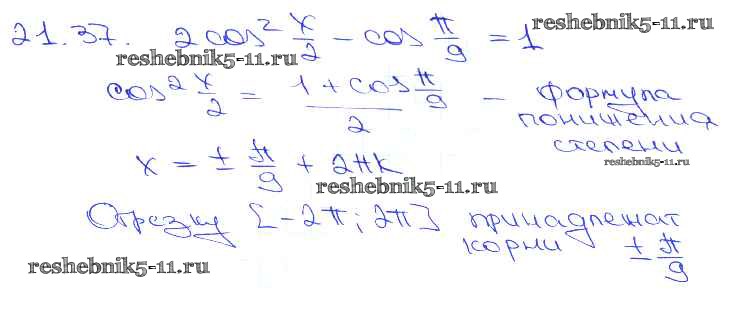 21.37. 2cos² x/2 - cos π/9 = 1
reshebnik5-11.ru
reshebnik5-11.ru
cos² x/2 = (1 + cos π/9)/2 — формула
понижения
степени
reshebnik5-11.ru
x = ± π/9 + 2πk
reshebnik5-11.ru
Отрезку [-2π; 2π] принадлежат
корни ± π/9
reshebnik5-11.ru